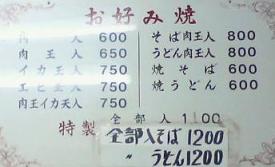 お好み焼
肉入 600
肉玉入 650
イカ玉入 750
エビ玉入 750
肉玉イカ天入 750
そば肉玉入 800
うどん肉玉入 800
焼そば 600
焼うどん 600
特製 全部入 1100
全部入そば 1200
〃 うどん 1200